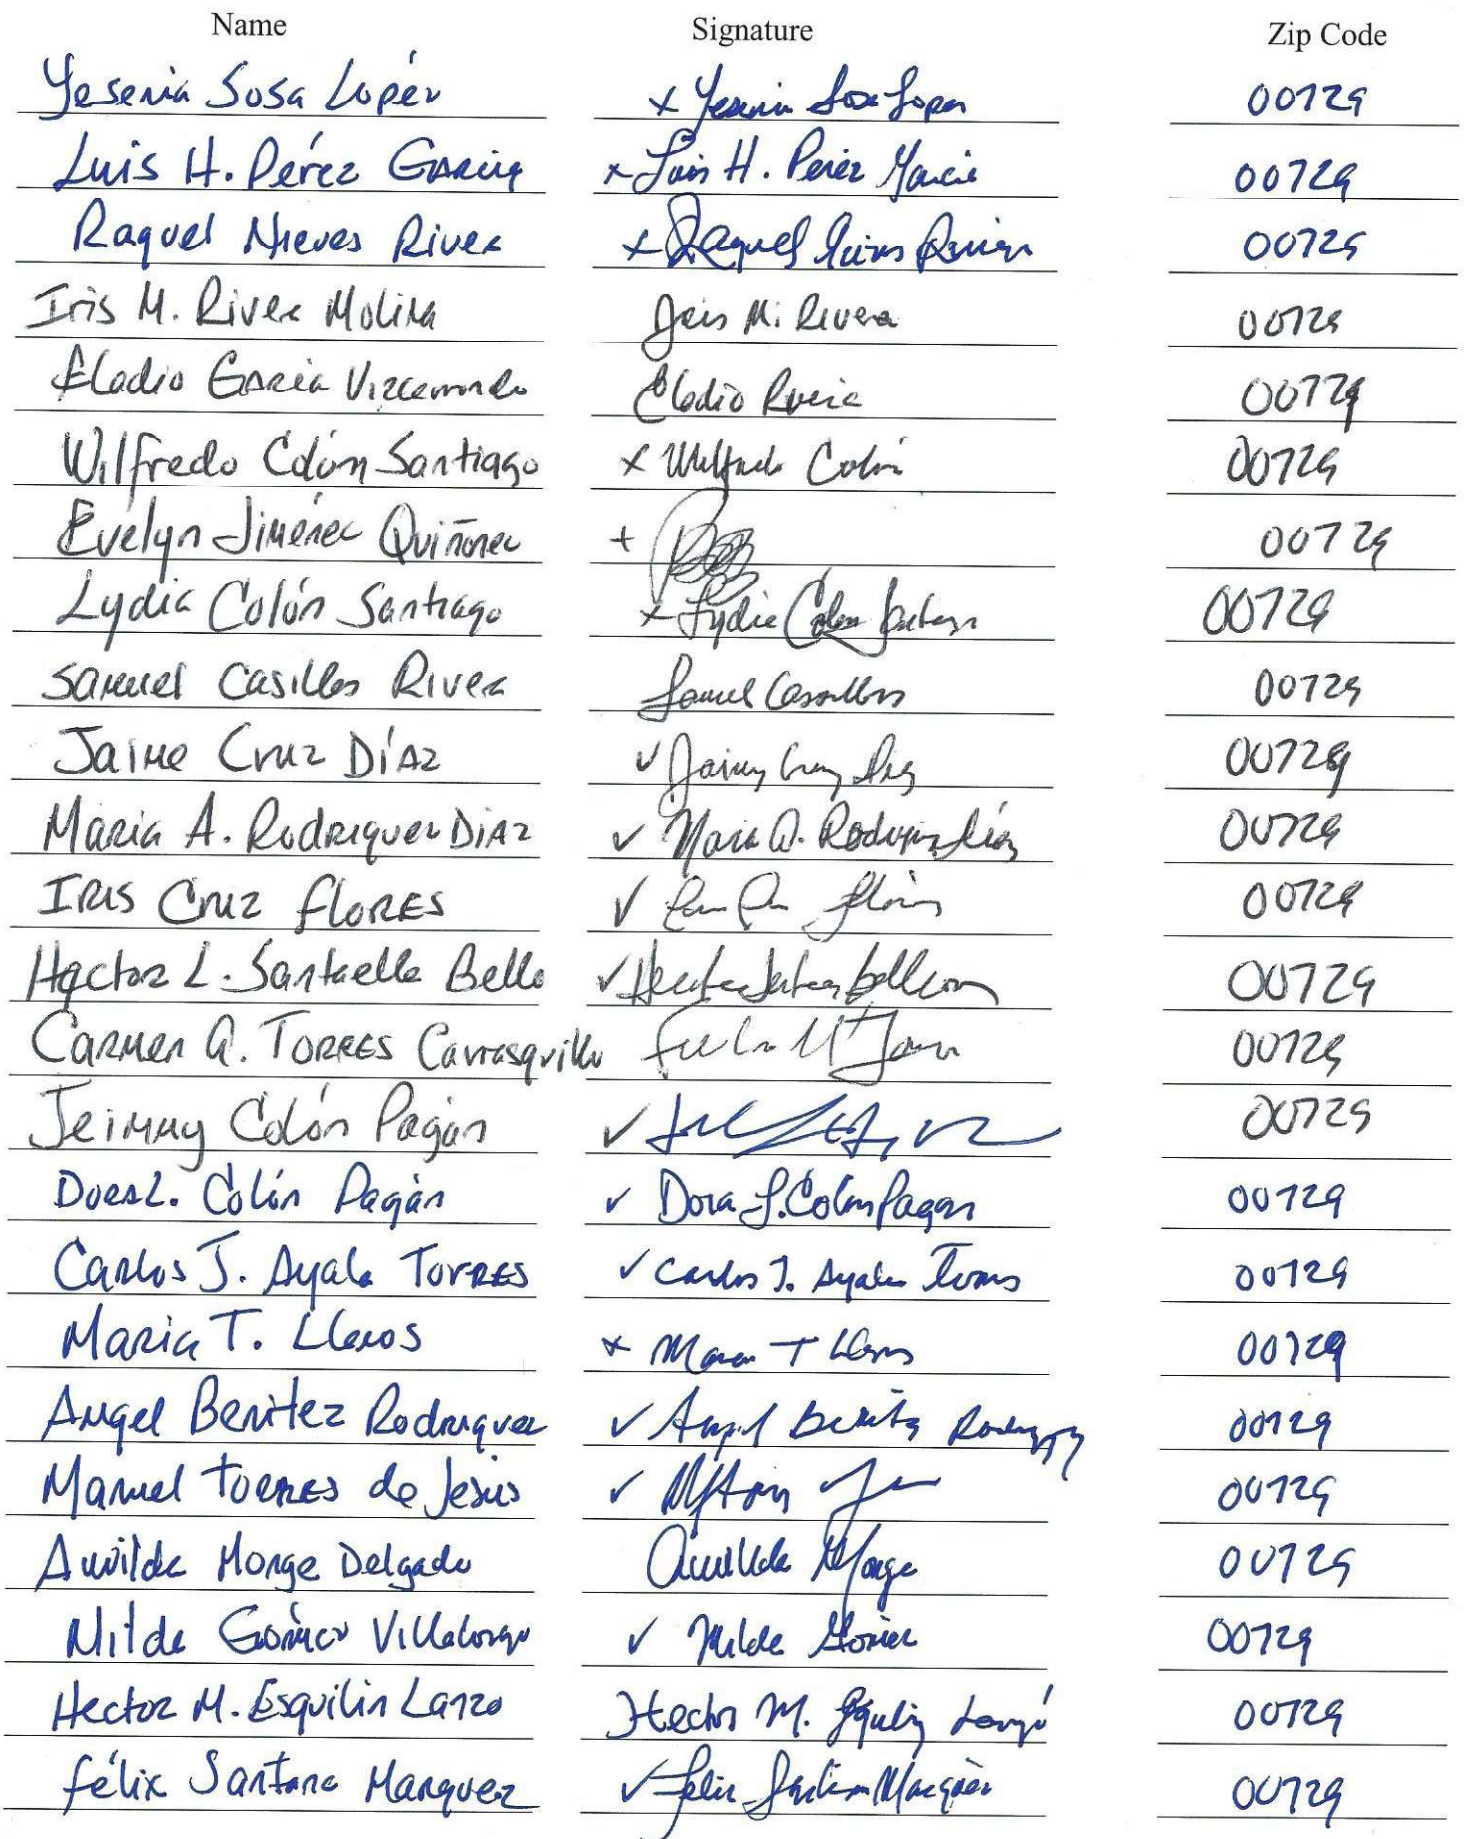 Name Signature Zip Code
Yesenia Sosa Lopez × Yesenia Sosa Lopez 00729
Luis H. Pérez Garcia × Luis H. Perez Garcia 00729
Raquel Nieves Rivera × Raquel Nieves Rivera 00729
Iris M. Rivera Molina Iris M. Rivera 00729
Eladio Garcia Eladio 00729
Wilfredo Colón Santiago × Wilfredo Colón 00729
Evelyn Jiménez Quiñonez + 00729
Lydia Colón Santiago × Lydia Colon Santiago 00729
Samuel Casillas Rivera Samuel Casillas 00729
Jaime Cruz Díaz ✓ 00729
Maria A. Rodriguez Diaz ✓ Maria A. Rodriguez Díaz 00729
Iris Cruz Flores ✓ Flores 00729
Hector L. Santaella Bello ✓ 00729
Carmen A. Torres Carrasquillo 00729
Jeimmy Colón Pagán ✓ 00729
Dora L. Colón Pagán ✓ Dora L. Colon Pagan 00729
Carlos J. Ayala Torres ✓ Carlos J. Ayala Torres 00729
Maria T. Llanos × Maria T Llanos 00729
Angel Benitez Rodriguez ✓ Angel Benitez Rodriguez 00729
Manuel Torres de Jesús ✓ 00729
Awilda Monge Delgado Awilda Monge 00729
Nilda Gómez Villalongo ✓ Nilda Gómez 00729
Hector M. Esquilin Lanzo Hector M. Esquilin Lanzó 00729
Félix Santana Marquez ✓ Felix Santana Marquez 00729